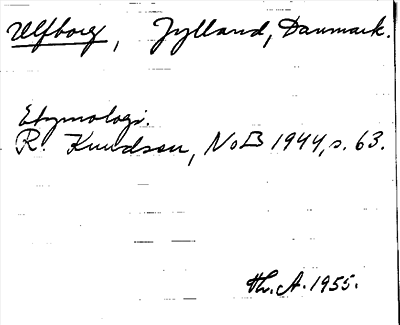 Ulfborg, Jylland, Danmark.
Etymologi.
R. Knudsen, NoB 1944, s. 63.
Th. A. 1955.